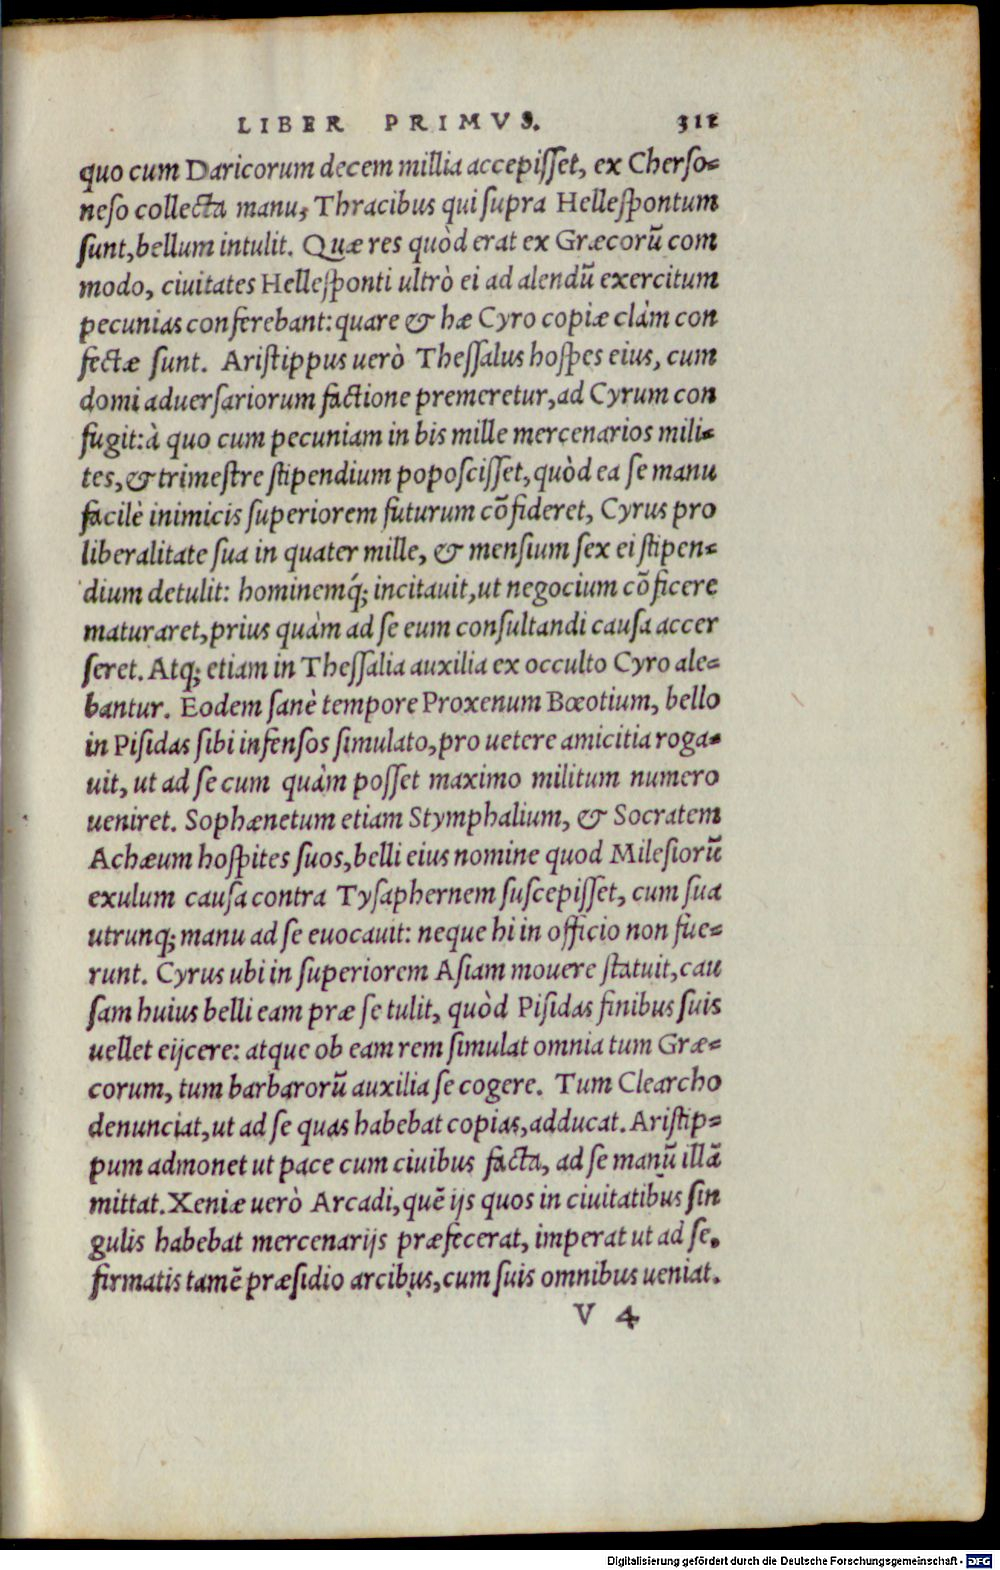 LIBER PRIMVS. 311
quo cum Daricorum decem millia accepisset, ex Cherso-
neso collecta manu, Thracibus qui supra Hellespontum
sunt, bellum intulit. Quæ res quòd erat ex Græcorū com
modo, ciuitates Hellesponti ultrò ei ad alendū exercitum
pecunias conferebant: quare & hæ Cyro copiæ clàm con
fectæ sunt. Aristippus uerò Thessalus hospes eius, cum
domi aduersariorum factione premeretur, ad Cyrum con
fugit: à quo cum pecuniam in bis mille mercenarios mili-
tes, & trimestre stipendium poposcisset, quòd ea se manu
facilè inimicis superiorem futurum cōfideret, Cyrus pro
liberalitate sua in quater mille, & mensium sex ei stipen-
dium detulit: hominemq́; incitauit, ut negocium cōficere
maturaret, prius quàm ad se eum consultandi causa accer
seret. Atq; etiam in Thessalia auxilia ex occulto Cyro ale-
bantur. Eodem sanè tempore Proxenum Bœotium, bello
in Pisidas sibi infensos simulato, pro uetere amicitia roga-
uit, ut ad se cum quàm posset maximo militum numero
ueniret. Sophænetum etiam Stymphalium, & Socratem
Achæum hospites suos, belli eius nomine quod Milesiorū
exulum causa contra Tysaphernem suscepisset, cum sua
utrunq; manu ad se euocauit: neque hi in officio non fue-
runt. Cyrus ubi in superiorem Asiam mouere statuit, cau
sam huius belli eam præ se tulit, quòd Pisidas finibus suis
uellet eijcere: atque ob eam rem simulat omnia tum Græ-
corum, tum barbarorū auxilia se cogere. Tum Clearcho
denunciat, ut ad se quas habebat copias, adducat. Aristip-
pum admonet ut pace cum ciuibus facta, ad se manū illā
mittat. Xeniæ uerò Arcadi, quē ijs quos in ciuitatibus sin
gulis habebat mercenarijs præfecerat, imperat ut ad se,
firmatis tamē præsidio arcibus, cum suis omnibus ueniat.
V 4
Digitalisierung gefördert durch die Deutsche Forschungsgemeinschaft - DFG